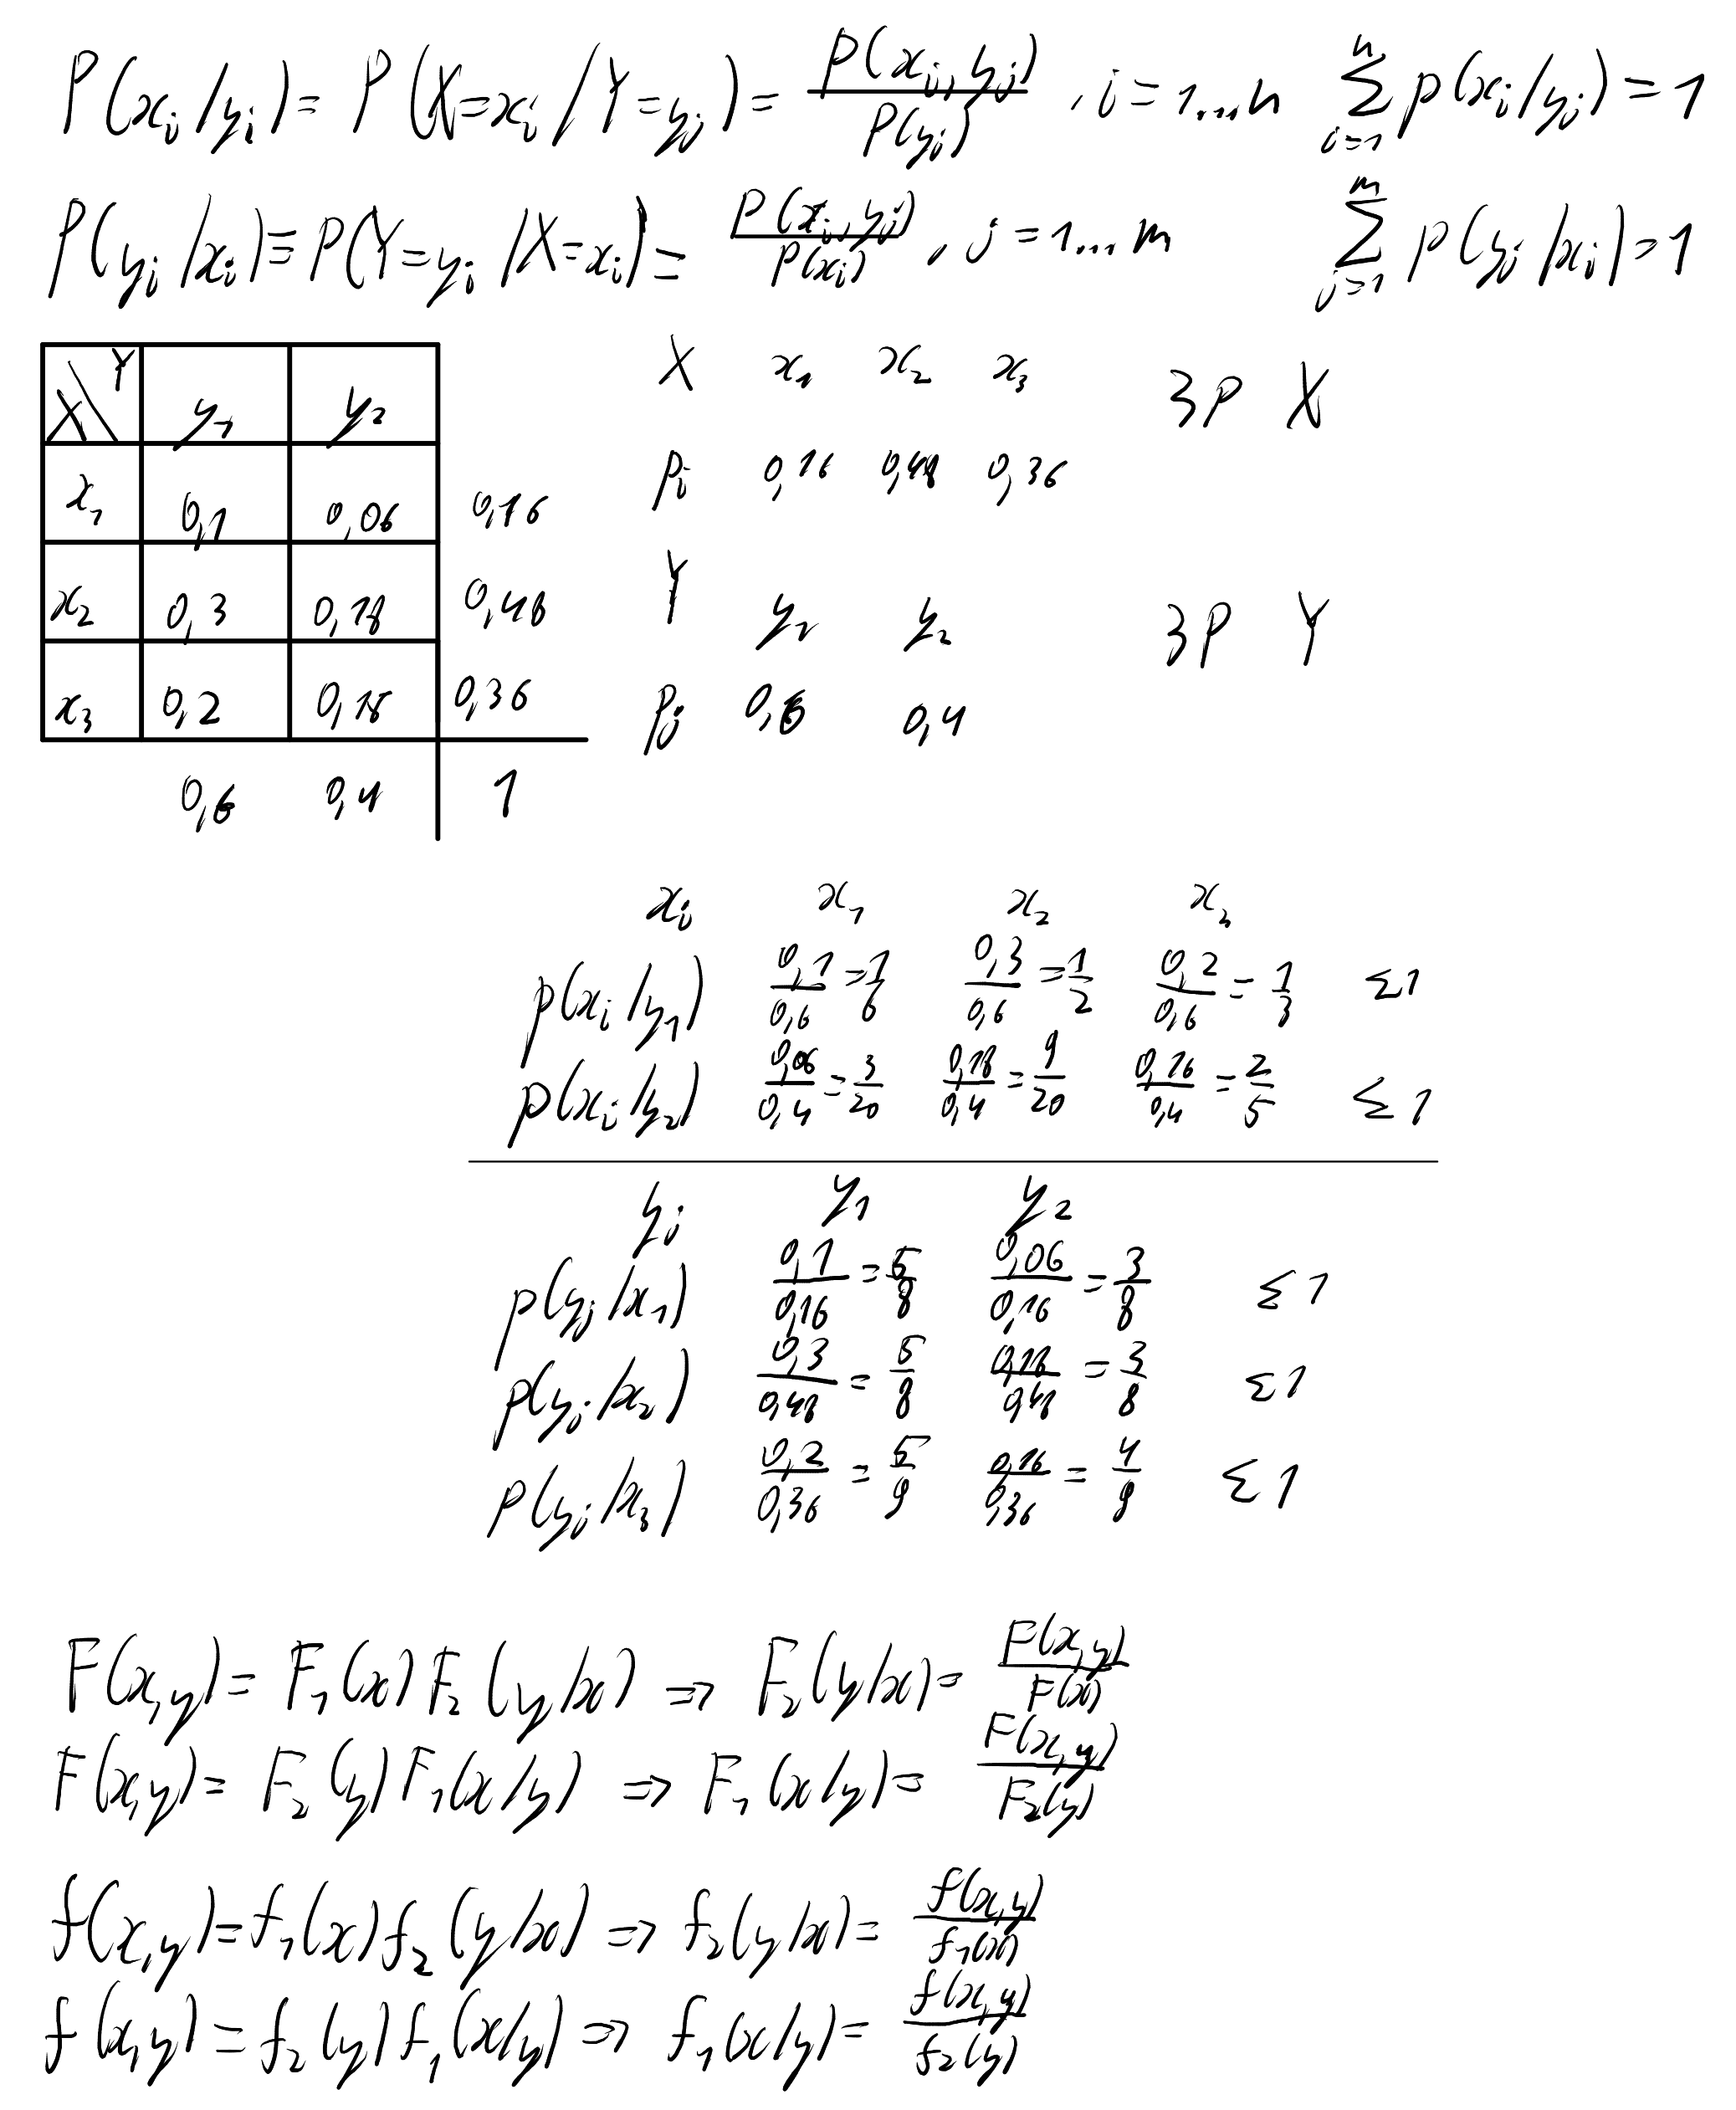 P(xᵢ/yⱼ) = P(X=xᵢ/Y=yⱼ) = P(xᵢ,yⱼ)/P(yⱼ), i=1...n ∑ᵢ₌₁ⁿ p(xᵢ/yⱼ)=1
P(yⱼ/xᵢ)=P(Y=yⱼ/X=xᵢ)= P(xᵢ,yⱼ)/P(xᵢ), j=1...m ∑ⱼ₌₁ᵐ p(yⱼ/xᵢ)=1
X\Y y₁ y₂
x₁ 0,1 0,06 0,16
x₂ 0,3 0,18 0,48
x₃ 0,2 0,16 0,36
0,6 0,4 1
X x₁ x₂ x₃ ЗР X
pᵢ 0,16 0,48 0,36
Y y₁ y₂ ЗР Y
pⱼ 0,6 0,4
xᵢ x₁ x₂ x₃
p(xᵢ/y₁) 0,1/0,6=1/6 0,3/0,6=1/2 0,2/0,6=1/3 Σ1
p(xᵢ/y₂) 0,06/0,4=3/20 0,18/0,4=9/20 0,16/0,4=2/5 Σ1
yⱼ y₁ y₂
p(yⱼ/x₁) 0,1/0,16=5/8 0,06/0,16=3/8 Σ1
p(yⱼ/x₂) 0,3/0,48=5/8 0,18/0,48=3/8 Σ1
p(yⱼ/x₃) 0,2/0,36=5/9 0,16/0,36=4/9 Σ1
F(x,y)= F₁(x)F₂(y/x) ⇒ F₂(y/x)= F(x,y)/F(x)
F(x,y)= F₂(y)F₁(x/y) ⇒ F₁(x/y)= F(x,y)/F₂(y)
f(x,y)=f₁(x)f₂(y/x) ⇒ f₂(y/x)= f(x,y)/f₁(x)
f(x,y)=f₂(y)f₁(x/y) ⇒ f₁(x/y)= f(x,y)/f₂(y)